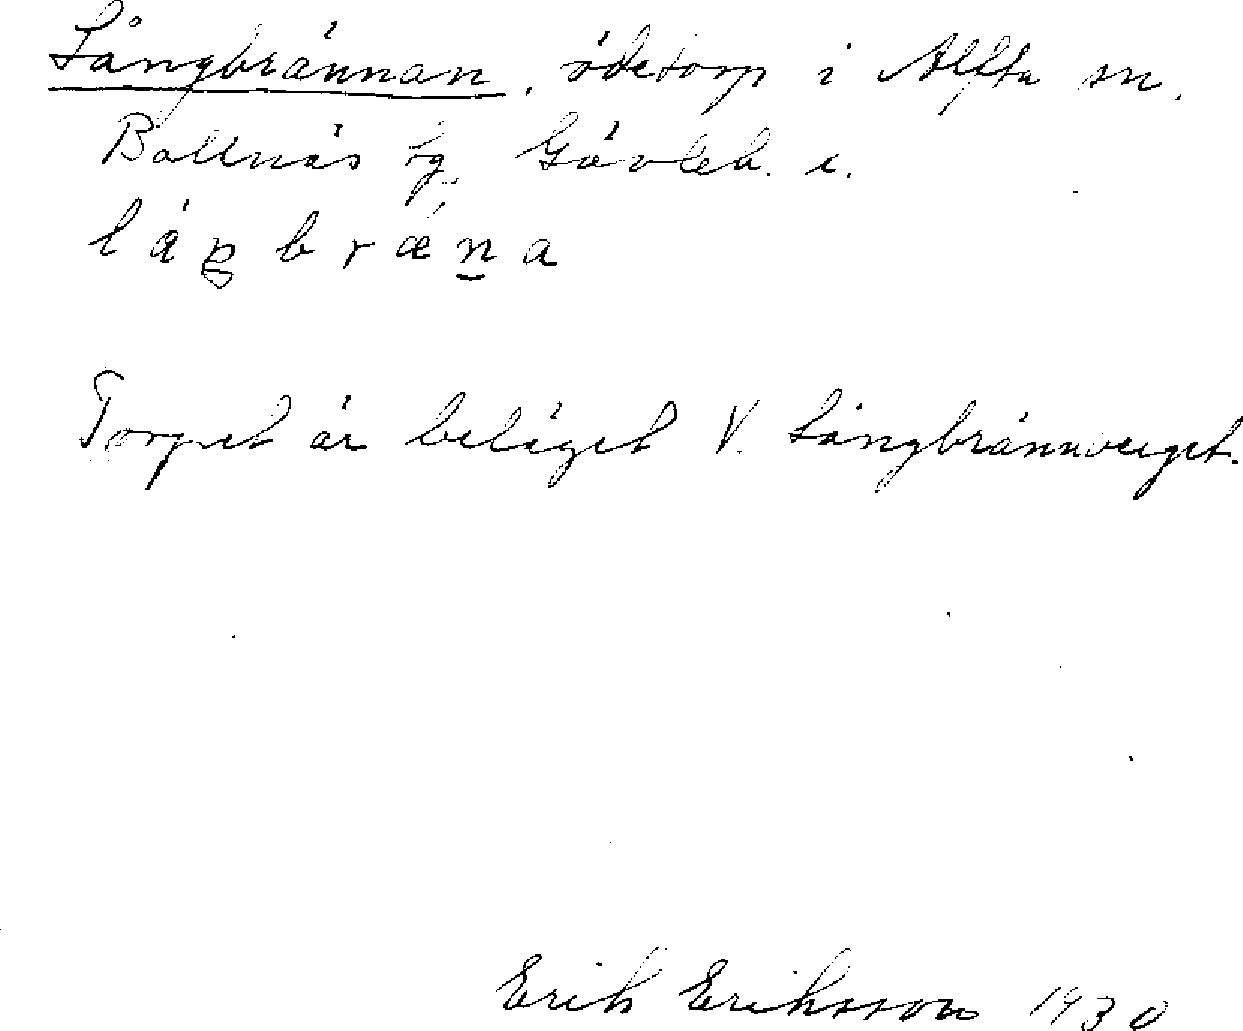 Långbrännan, ödetorp i Alfta sn.
Bollnäs tg. Gävleb. l.
Torpet är beläget V. Långbrännberget.
Erik Eriksson 1930